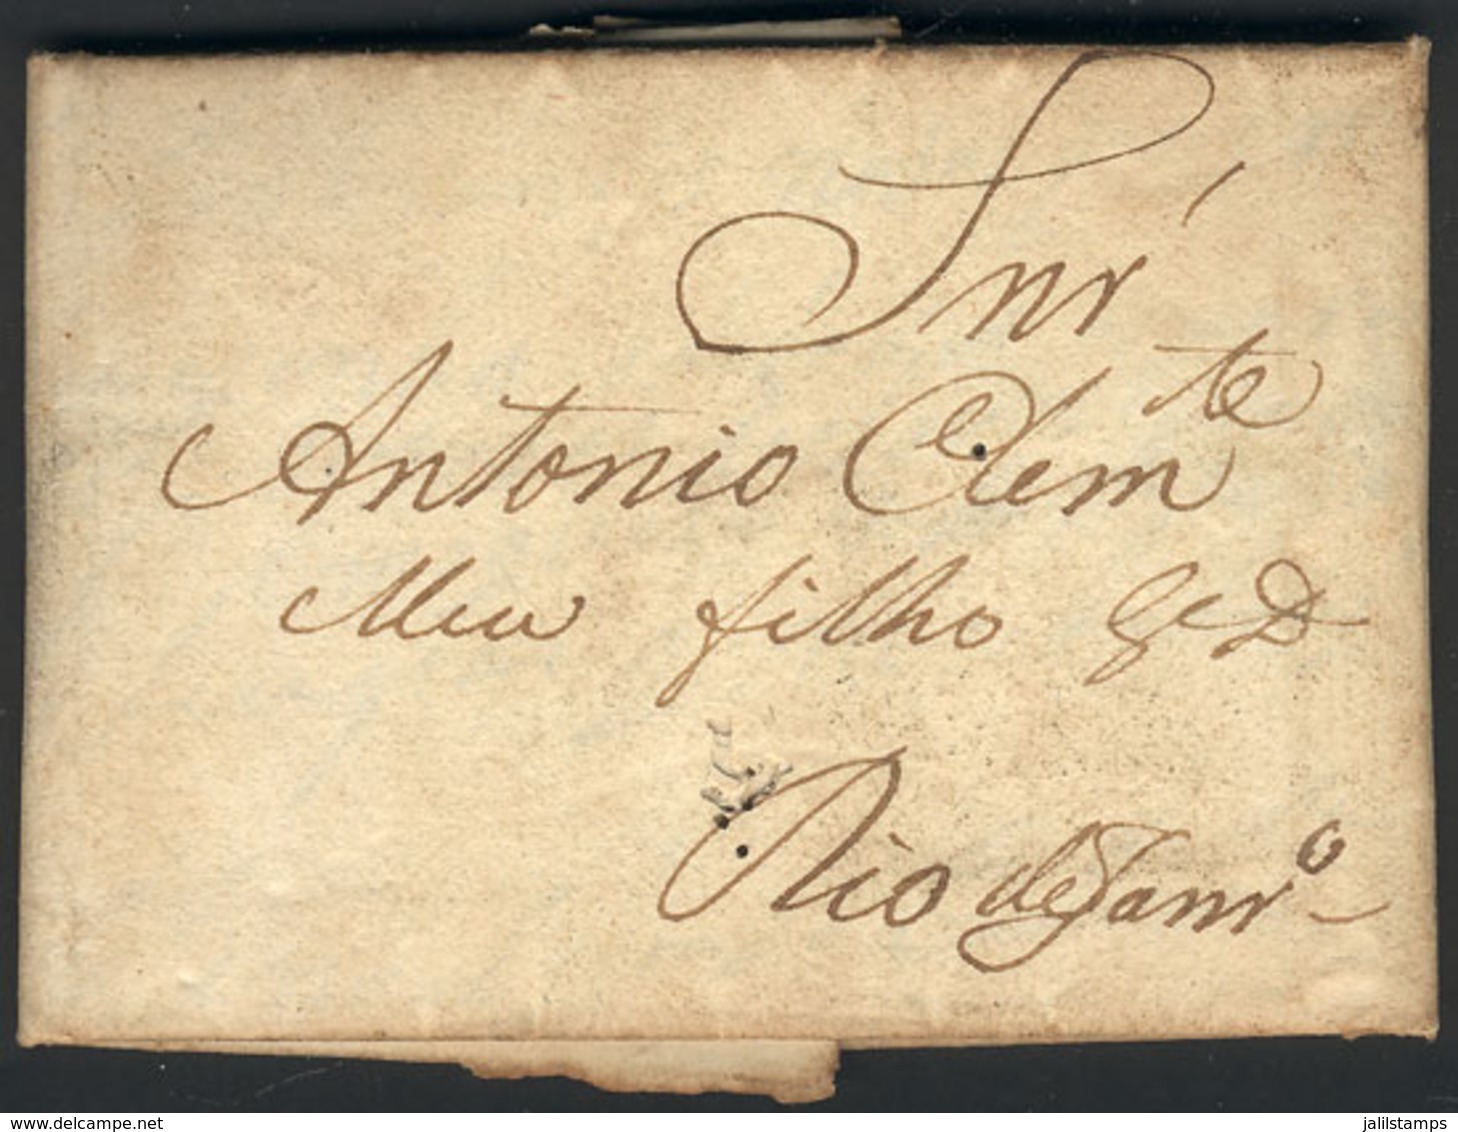 Snr'
Antonio Clem^te
Meu filho G^e D
Rio de Janr^o
delcampe.net
jalilstamps